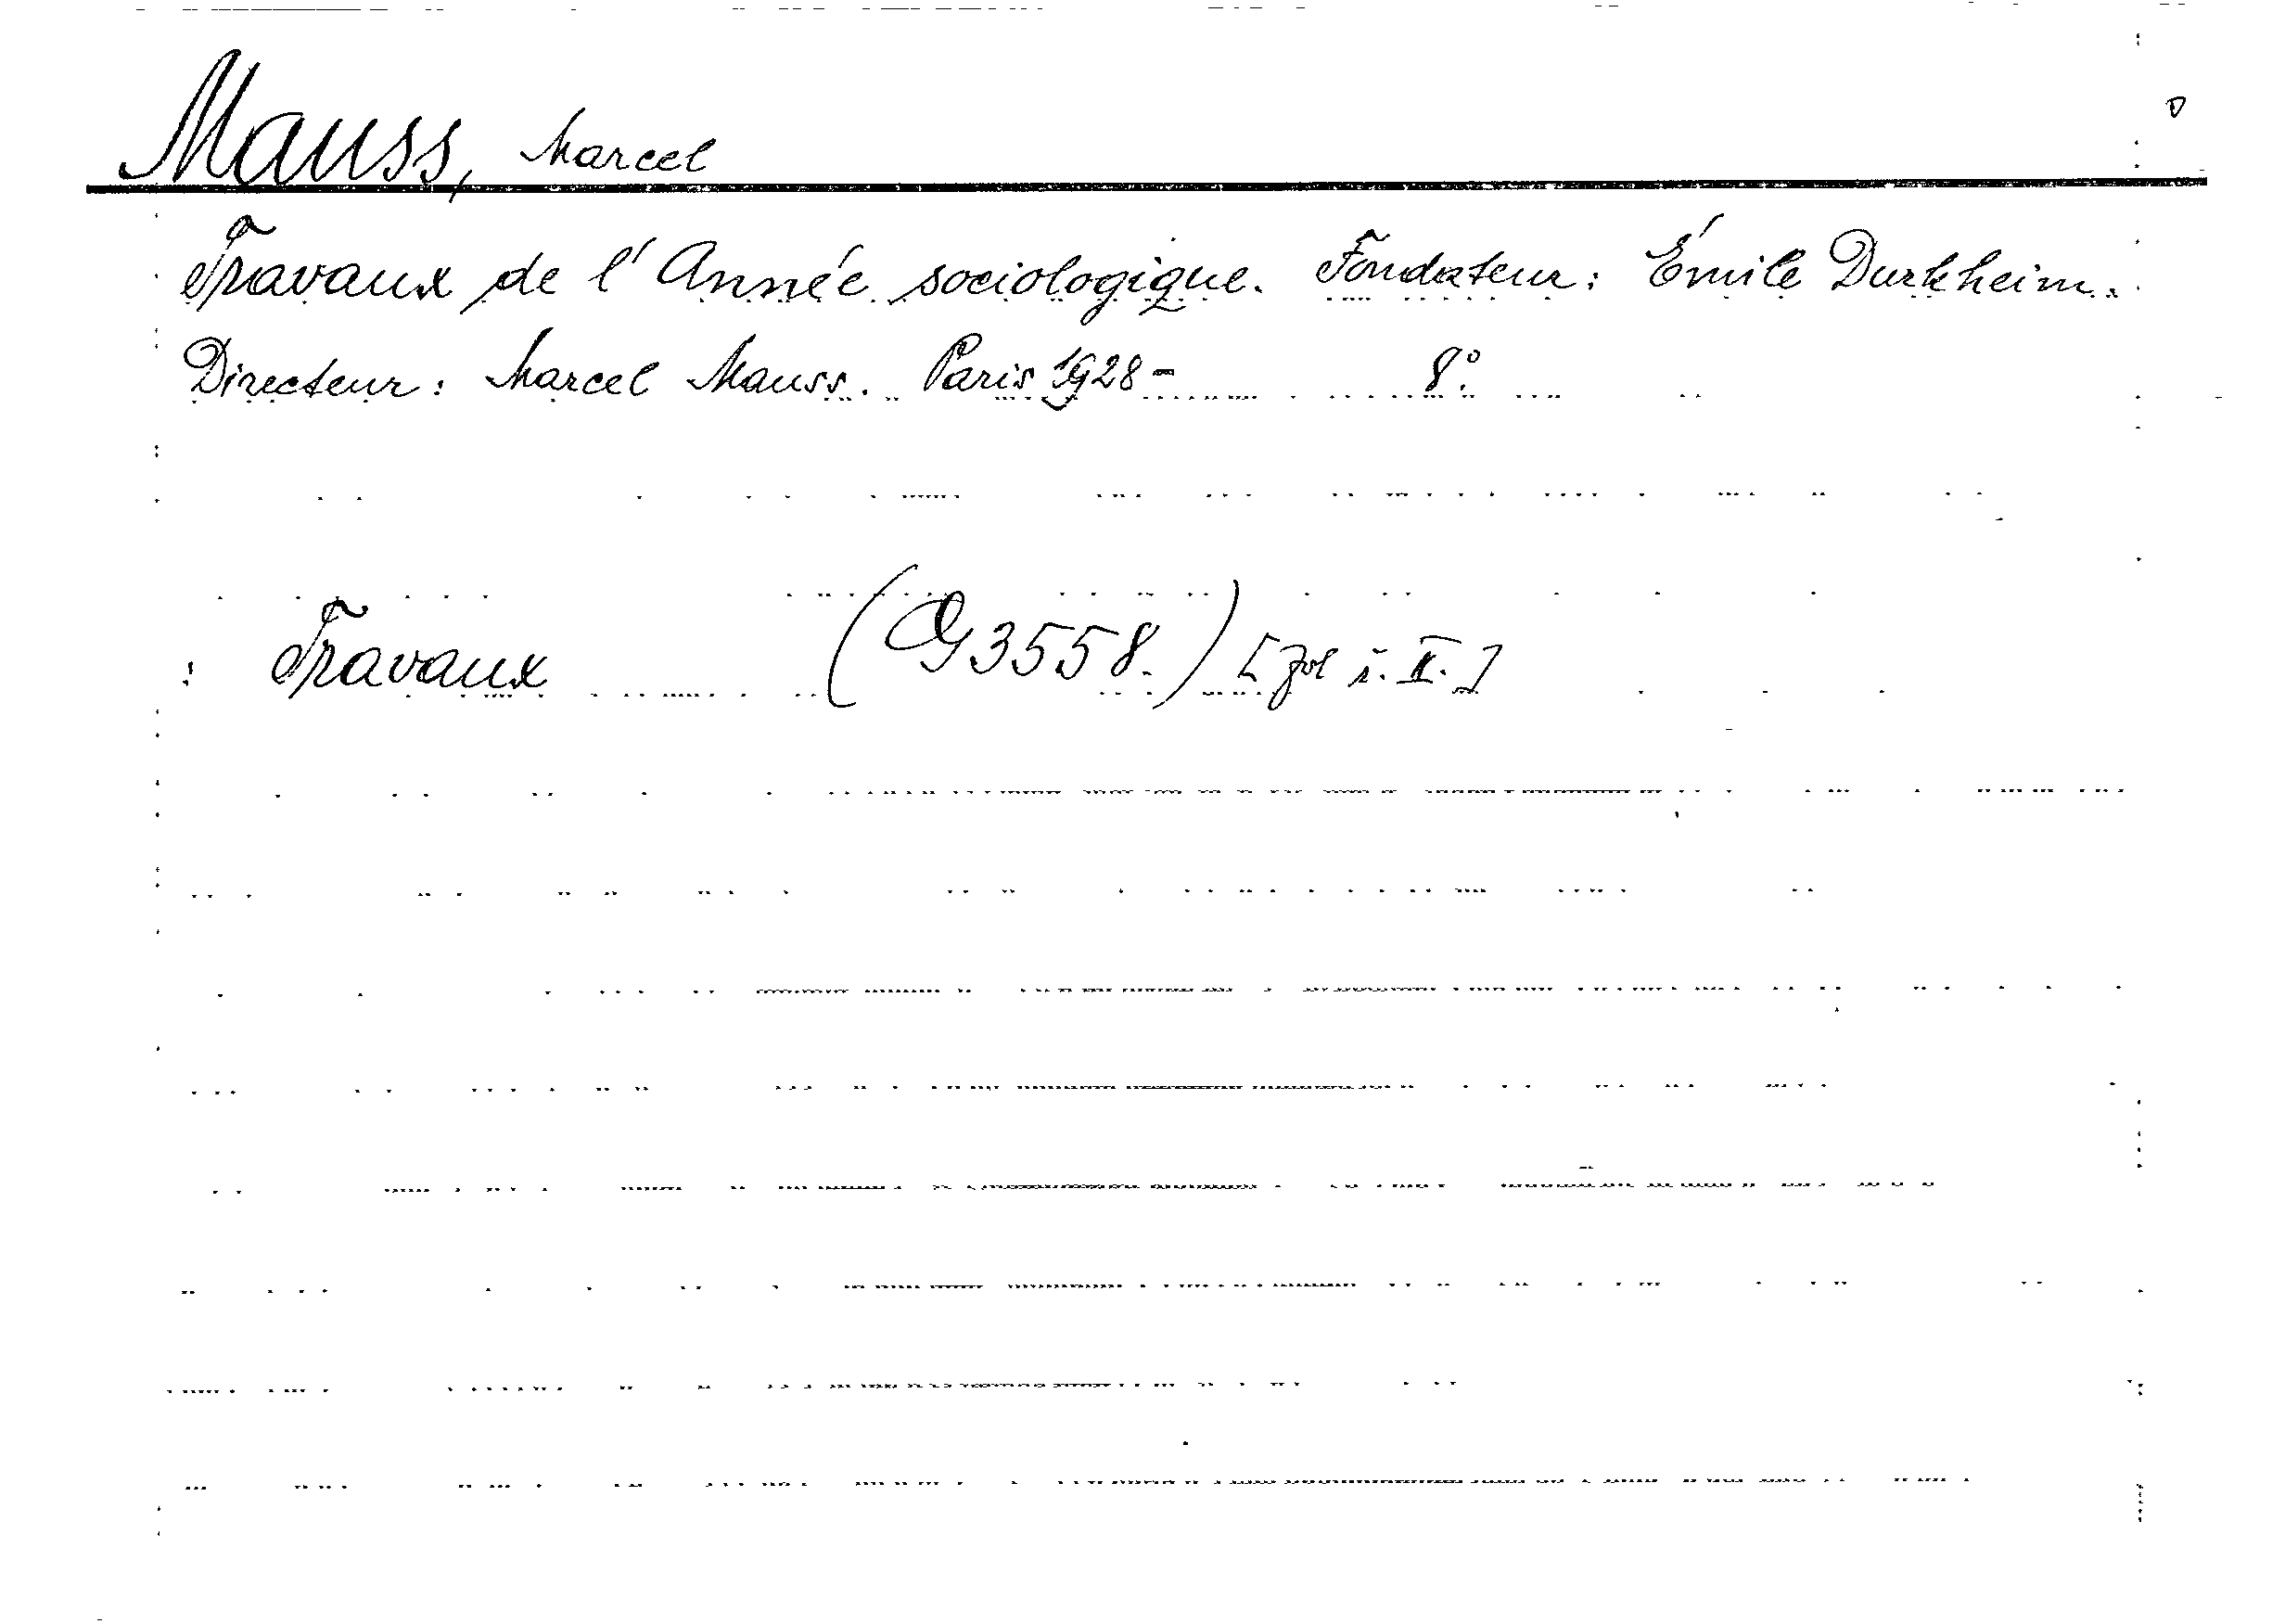 Mauss, Marcel
Travaux de l'Année sociologique. Fondateur: Émile Durkheim.
Directeur: Marcel Mauss. Paris 1928- 8°.
: Travaux (G 3558.) [ i. II.]